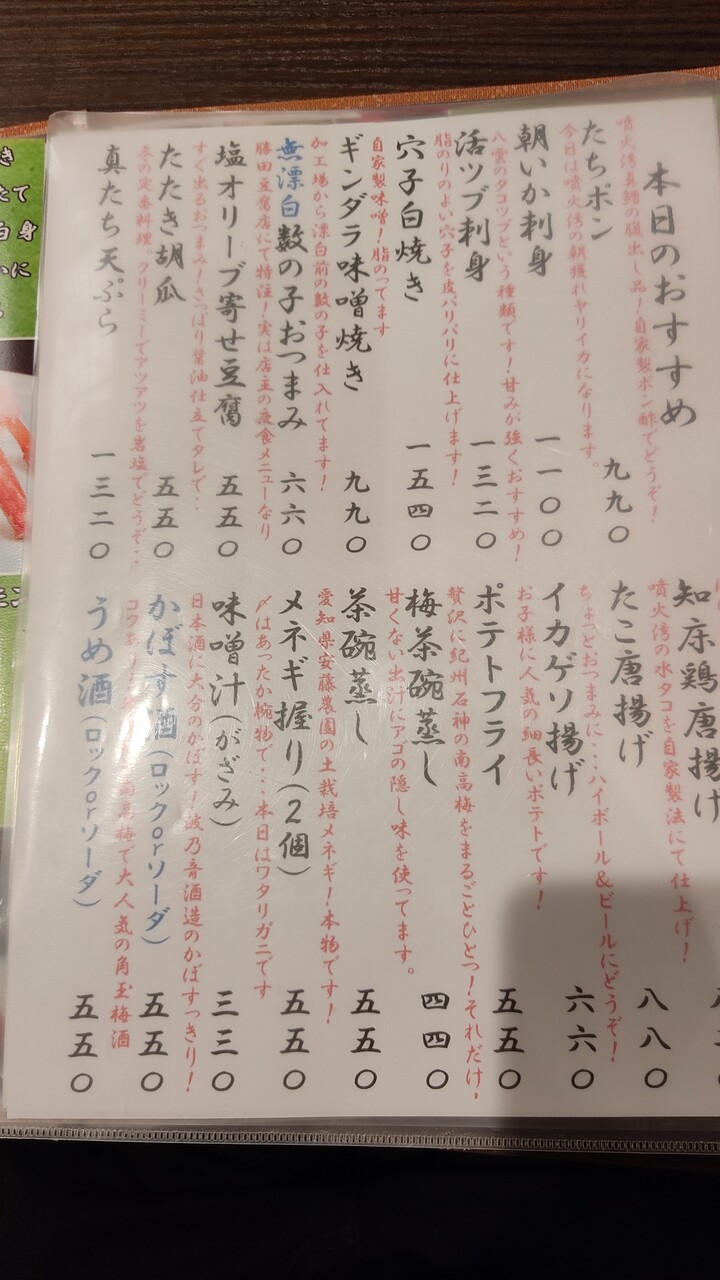 本日のおすすめ
噴火湾真鱈の腹出し品！自家製ポン酢でどうぞ！
たちポン
九九〇
今日は噴火湾の朝獲れヤリイカになります。
朝いか刺身
一一〇〇
八雲のタコツブという種類です！甘みが強くおすすめ！
活ツブ刺身
一三二〇
脂のりのよい穴子を皮パリパリに仕上げます！
穴子白焼き
一五四〇
自家製味噌！脂のってます
ギンダラ味噌焼き
九九〇
加工場から漂白前の数の子を仕入れてます！
無漂白数の子おつまみ
六六〇
勝田豆腐店にて特注！実は店主の夜食メニューなり
塩オリーブ寄せ豆腐
五五〇
すぐ出るおつまみ！さっぱり醤油仕立てタレで‥
たたき胡瓜
五五〇
冬の定番料理。クリーミーでアツアツを岩塩でどうぞ‥
真たち天ぷら
一三二〇
知床鶏唐揚げ
噴火湾の水タコを自家製法にて仕上げ！
たこ唐揚げ
八八〇
ちょっとおつまみに‥‥ハイボール＆ビールにどうぞ！
イカゲソ揚げ
六六〇
お子様に人気の細長いポテトです！
ポテトフライ
五五〇
贅沢に紀州石神の南高梅をまるごとひとつ！それだけ！
梅茶碗蒸し
四四〇
甘くない出汁にアゴの隠し味を使ってます。
茶碗蒸し
五五〇
愛知県安藤農園の土栽培メネギ！本物です！
メネギ握り（2個）
五五〇
〆はあったか椀物で‥‥本日はワタリガニです
味噌汁（がざみ）
三三〇
日本酒に大分のかぼす！波乃音酒造のかぼすっきり！
かぼす酒（ロックorソーダ）
五五〇
南高梅で大人気の角玉梅酒
うめ酒（ロックorソーダ）
五五〇